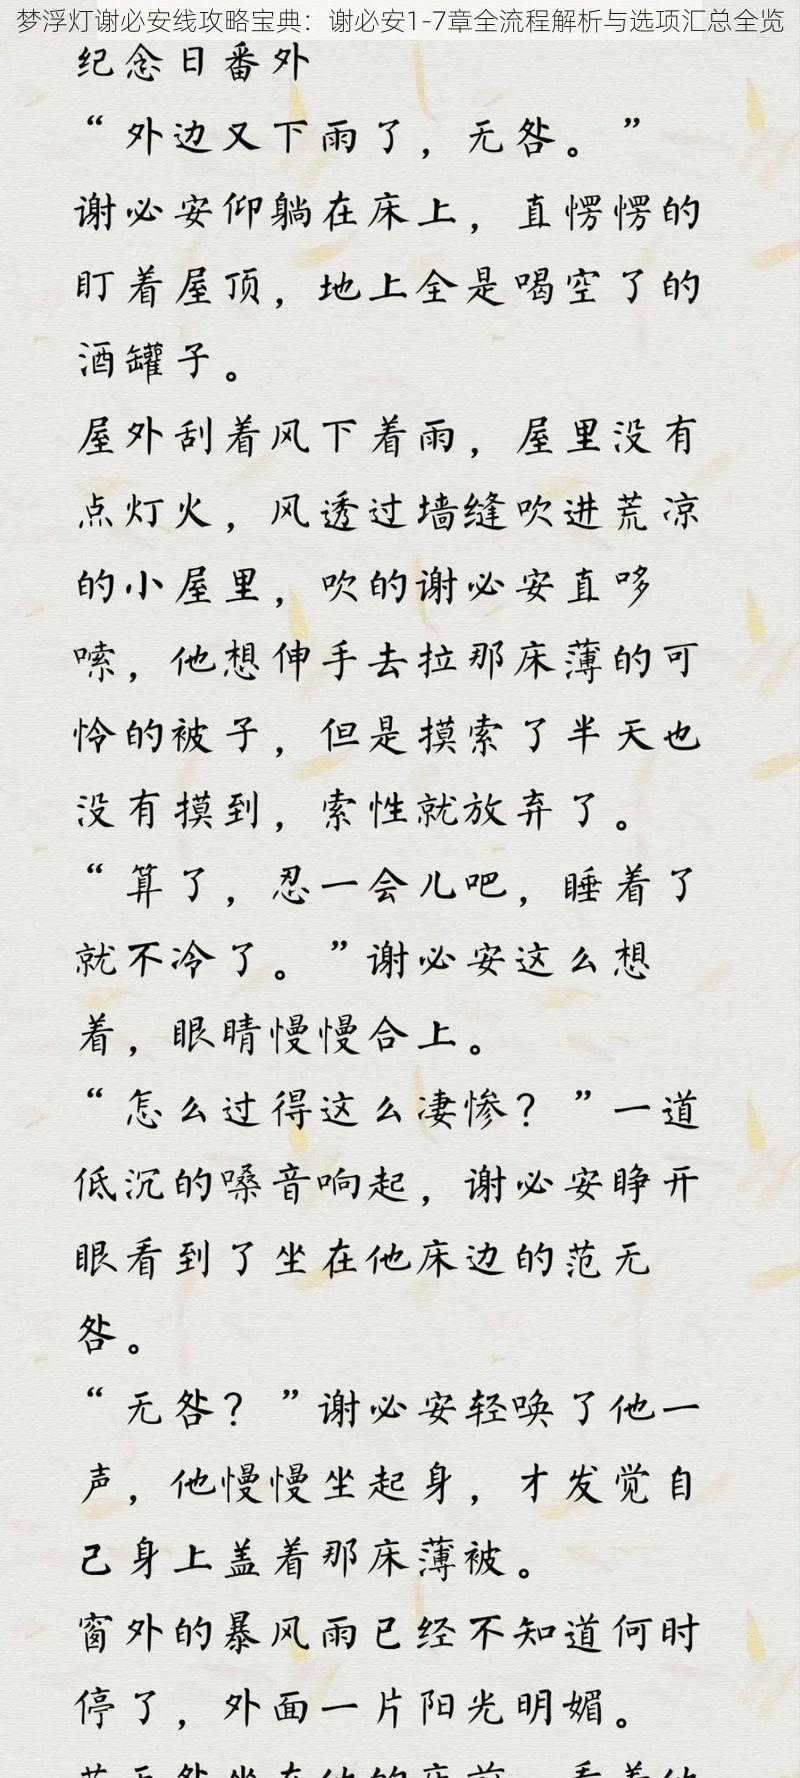 梦浮灯谢必安线攻略宝典：谢必安1-7章全流程解析与选项汇总全览
纪念日番外
“外边又下雨了，无咎。”
谢必安仰躺在床上，直愣愣的
盯着屋顶，地上全是喝空了的
酒罐子。
屋外刮着风下着雨，屋里没有
点灯火，风透过墙缝吹进荒凉
的小屋里，吹的谢必安直哆
嗦，他想伸手去拉那床薄的可
怜的被子，但是摸索了半天也
没有摸到，索性就放弃了。
“算了，忍一会儿吧，睡着了
就不冷了。”谢必安这么想
着，眼睛慢慢合上。
“怎么过得这么凄惨？”一道
低沉的嗓音响起，谢必安睁开
眼看到了坐在他床边的范无
咎。
“无咎？”谢必安轻唤了他一
声，他慢慢坐起身，才发觉自
己身上盖着那床薄被。
窗外的暴风雨已经不知道何时
停了，外面一片阳光明媚。